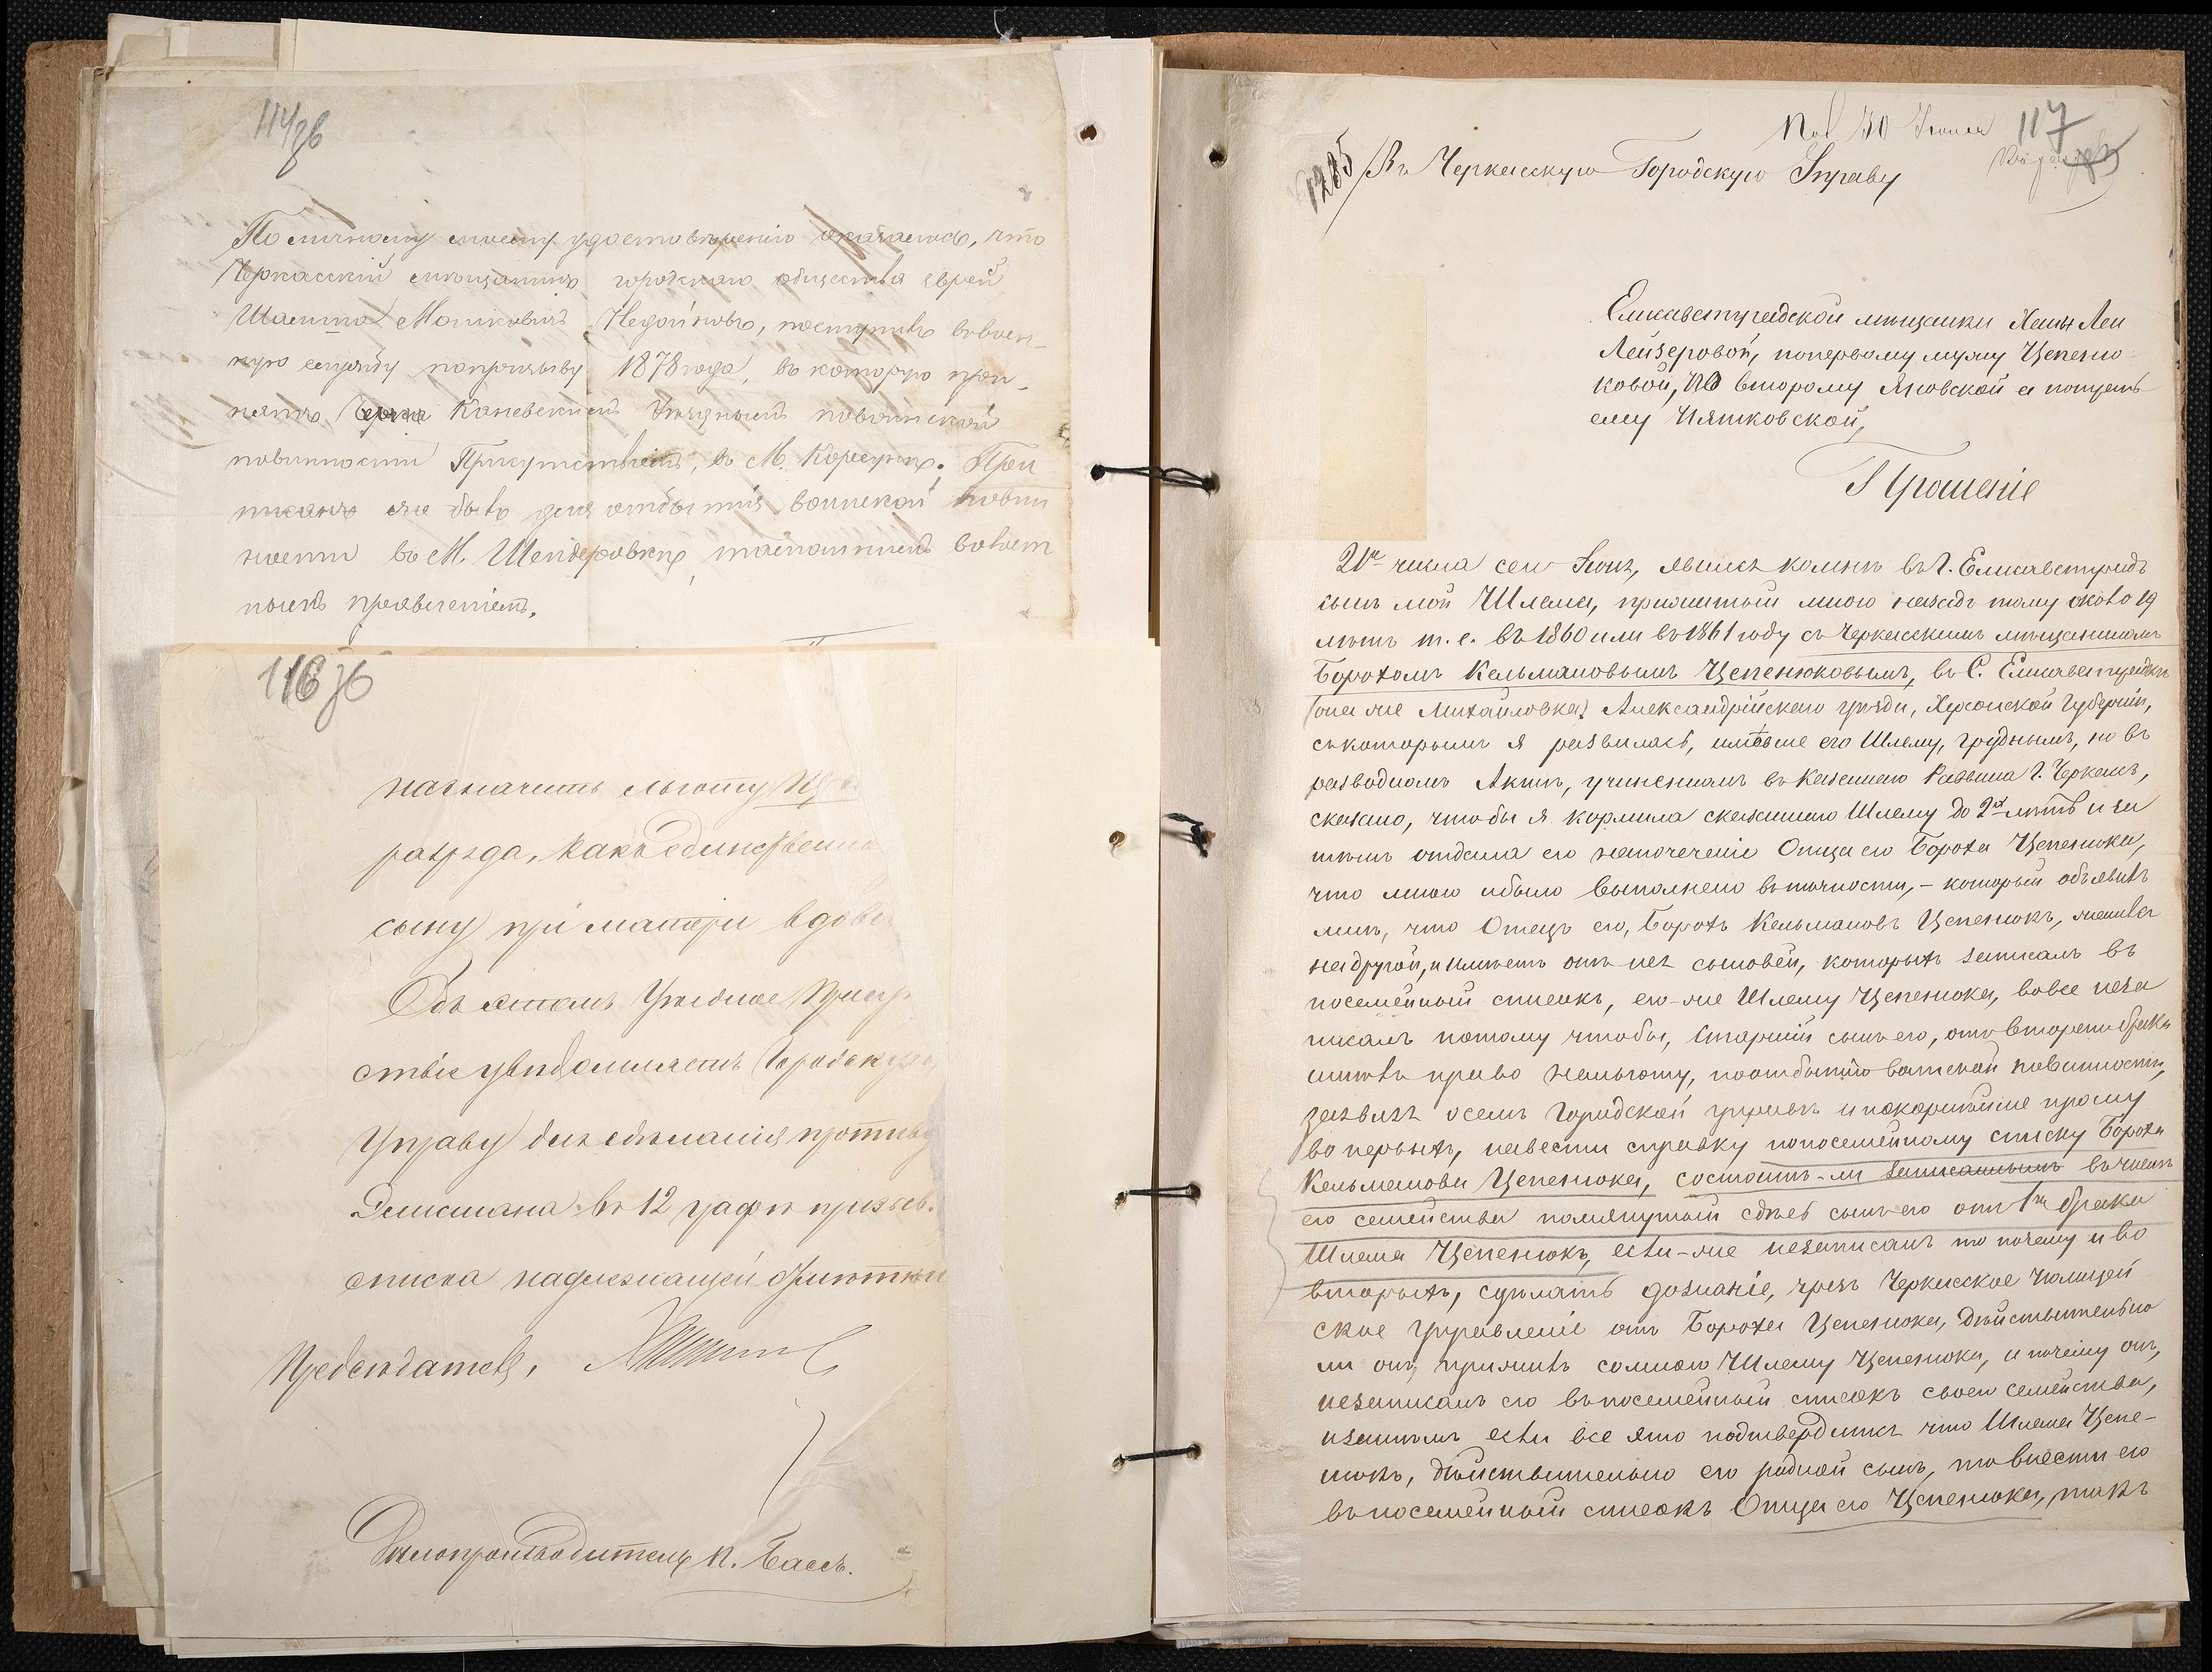 114/зв
По личному моему удостоверению оказалось, что
Черкасскій мещанинъ городскаго общества еврей
Мошковичъ поступилъ въ воен-
ную службу по призыву 1878 года, въ которую при-
нятъ Каневскимъ Уезднымъ по воинской
повинности Присутствіемъ, въ М. Корсунъ. При
писанъ же былъ для отбытія воинской повин
ности въ М. Шендеровку, тамошнимъ волост
нымъ правленіемъ.
116 зв
назначить льготу
разряда, какъ единственно
сыну при матери вдове
Объ этомъ Уездное Присут
ствіе уведомляетъ Городскую
Управу для сделанія противу
въ 12 графе призыв.
списка надлежащей отметки
Председатель,
Делопроизводитель К. Бассъ.
30 Іюня 117
1285 Въ Черкасскую Городскую Управу
Елисаветградской мещанки Ханы Леи
Лейзеровой, по первому мужу Цепеню-
ковой, по второму Яновской а по треть-
ему Пятковской,
Прошеніе
21го числа сего Іюня, явился ко мне въ Г. Елисаветградъ
сынъ мой Шлема, прижитый мною назадъ тому около 19
летъ т. е. въ 1860 или въ 1861 году съ Черкасскимъ мещаниномъ
Борохомъ Кельмановымъ Цепенюковымъ, въ С. Елисаветградке
(она же Михайловка) Александрійскаго уезда, Херсонской Губерніи,
съ которымъ я развелась, имевше его Шлему, груднымъ, но въ
разводномъ Акте, учиненномъ въ Казеннаго Раввина Г. Черкасъ,
сказано, чтобы я кормила сказаннаго Шлему до 2хъ летъ и за
темъ отдала его на попеченіе Отца его Бороха Цепенюка,
что мною и было выполнено въ точности, - который объявилъ
мне, что Отецъ его, Борохъ Кельмановъ Цепенюкъ, женился
на другой, и имеетъ отъ нея сыновей, которыхъ записалъ въ
посемейный списокъ, его-же Шлему Цепенюка, вовсе неза
писалъ потому чтобы, старшій сынъ его, отъ второго брака
имелъ право на льготу, по отбытію воинской повинности,
заявляя о семъ Городской управе и покорнейше прошу
во первыхъ, навести справку по посемейному списку Бороха
Кельманова Цепенюка, состоитъ-ли записаннымъ въ числе
его семейства помянутый здесь сынъ его отъ 1го брака
Шлема Цепенюкъ, если-же незаписанъ то почему и во
вторыхъ, сделать дознаніе, чрезъ Черкасское Полицей
ское управленіе отъ Бороха Цепенюка, действительно
ли онъ, прижилъ со мною Шлему Цепенюка, и почему онъ,
незаписалъ его въ посемейный списокъ своего семейства,
и затемъ если все это подтвердится что Шлема Цепе-
нюкъ, действительно его родной сынъ, то внести его
въ посемейный списокъ Отца его Цепенюка, такъ